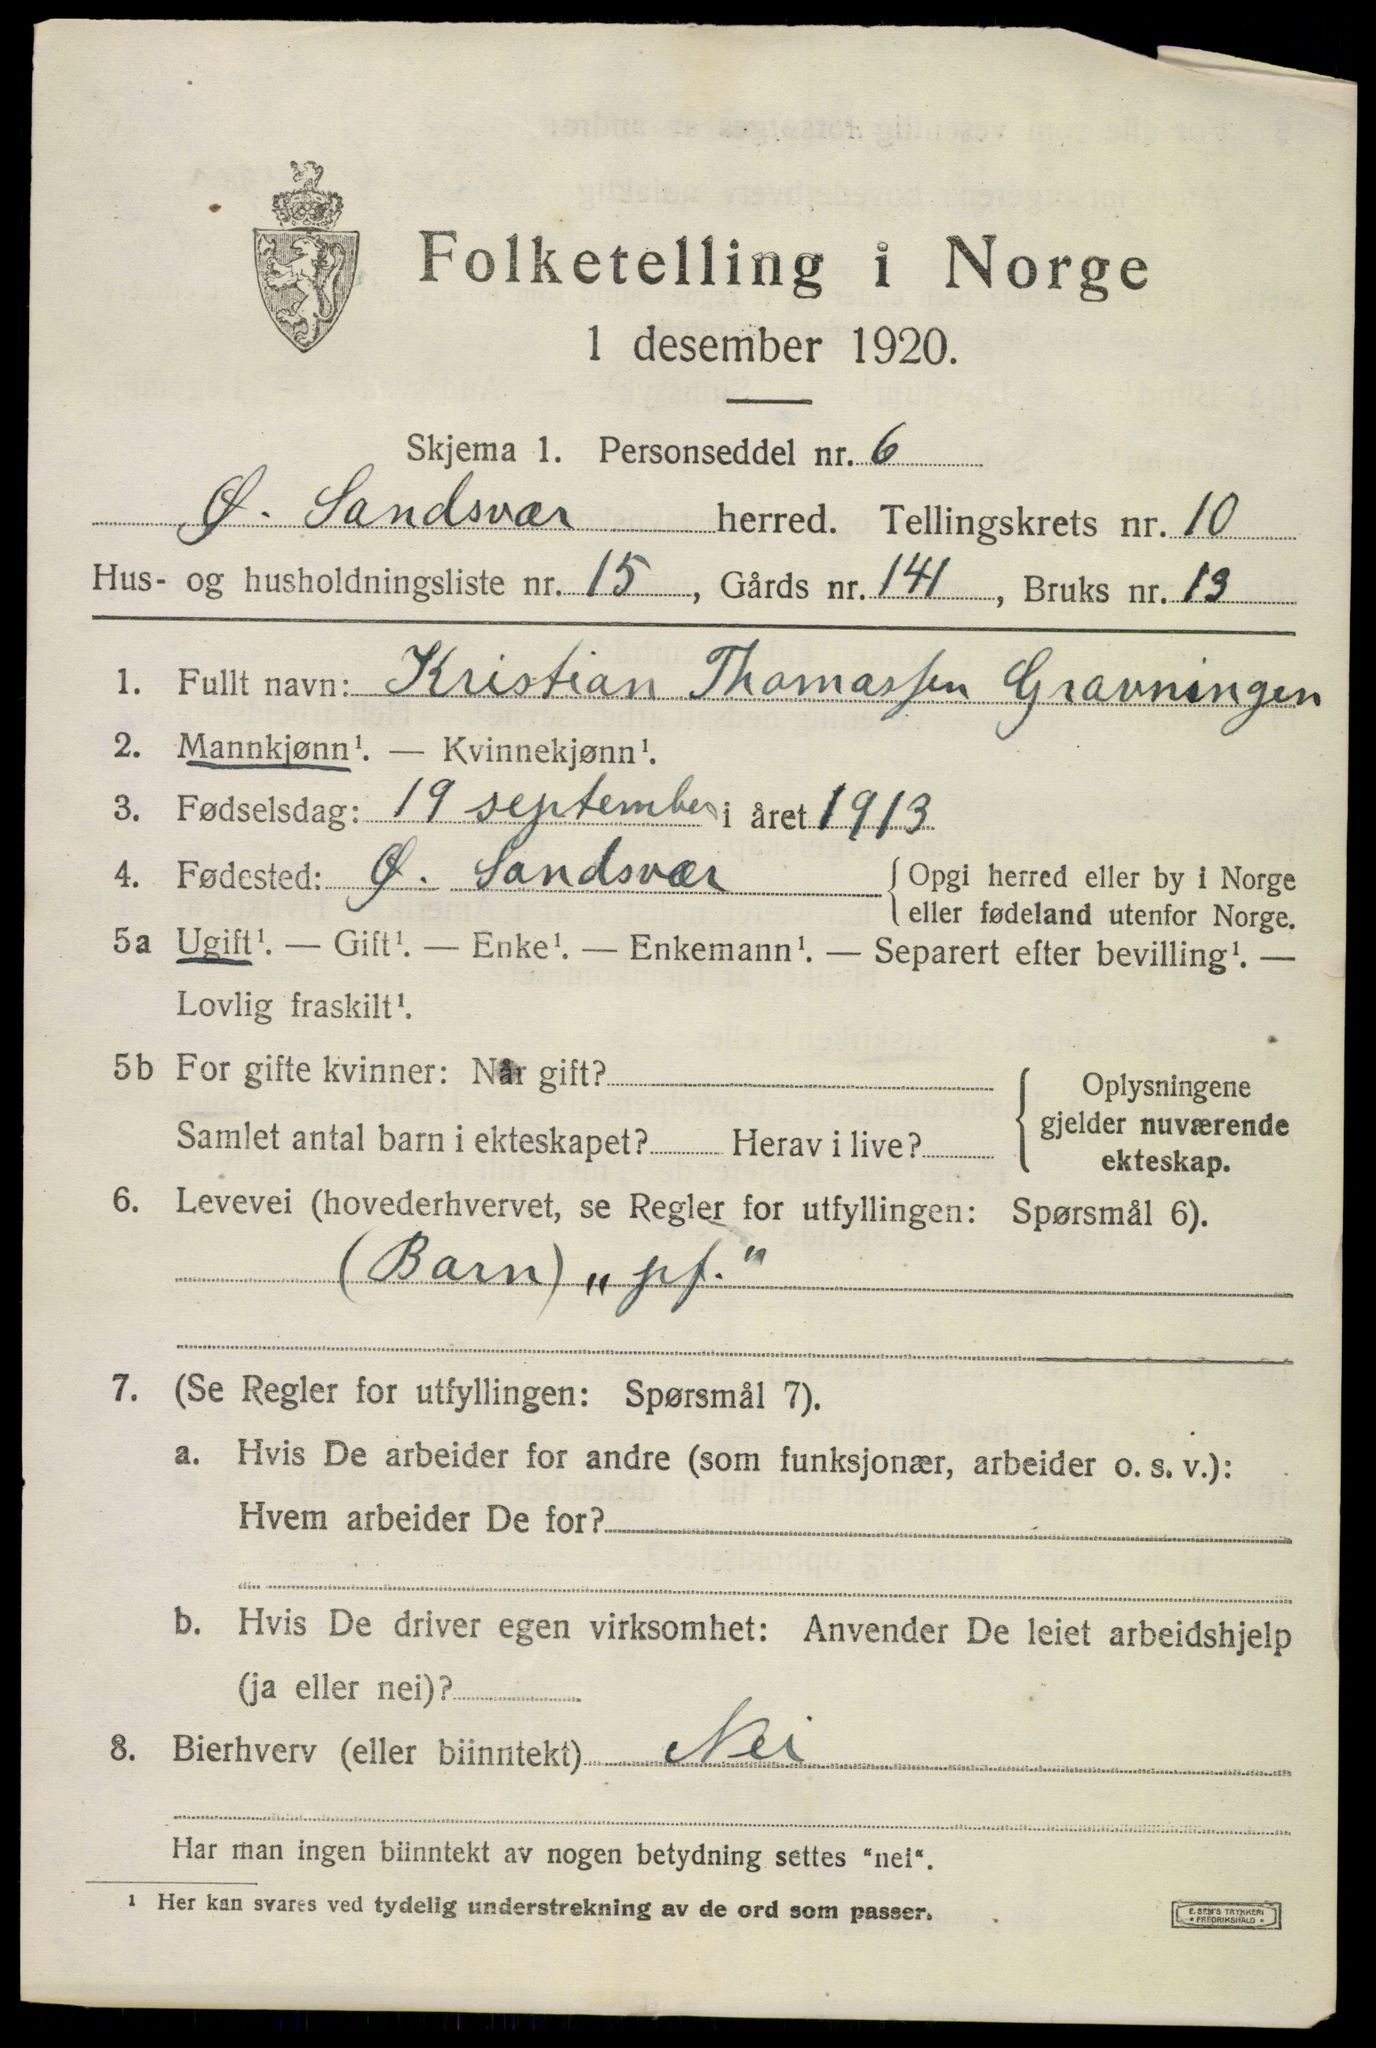 Folketelling i Norge
1 desember 1920.
Skjema 1. Personseddel nr. 6
Ø. Sandsvær herred. Tellingskrets nr. 10
Hus- og husholdningsliste nr. 15, Gårds nr. 141, Bruks nr. 13
1. Fullt navn: Kristian Thomassen Gravningen
2. Mannkjønn¹. — Kvinnekjønn¹.
3. Fødselsdag: 19 september i året 1913
4. Fødested: Ø. Sandsvær { Opgi herred eller by i Norge
eller fødeland utenfor Norge.
5a Ugift¹. — Gift¹. — Enke¹. — Enkemann¹. — Separert efter bevilling¹. —
Lovlig fraskilt¹.
5b For gifte kvinner: Når gift?
Samlet antal barn i ekteskapet? Herav i live?
{ Oplysningene
gjelder nuværende
ekteskap.
6. Levevei (hovederhvervet, se Regler for utfyllingen: Spørsmål 6).
(Barn) „pf."
7. (Se Regler for utfyllingen: Spørsmål 7).
a. Hvis De arbeider for andre (som funksjonær, arbeider o. s. v.):
Hvem arbeider De for?
b. Hvis De driver egen virksomhet: Anvender De leiet arbeidshjelp
(ja eller nei)?
8. Bierhverv (eller biinntekt) Nei
Har man ingen biinntekt av nogen betydning settes "nei".
¹ Her kan svares ved tydelig understrekning av de ord som passer.
E. SEM'S TRYKKERI
• FREDRIKSHALD •